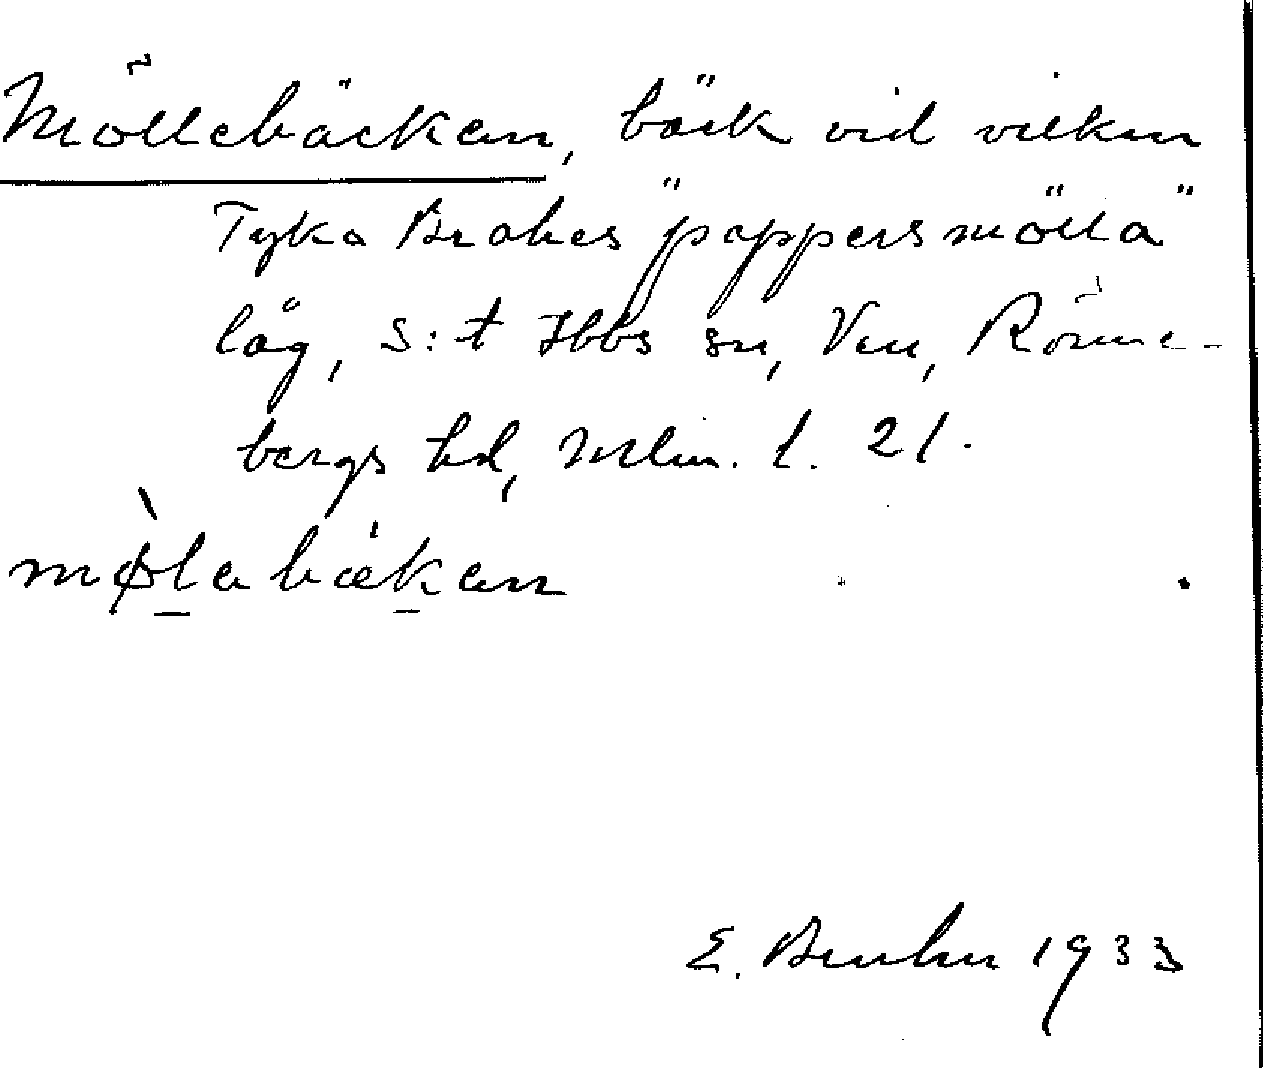 Möllebäcken, bäck vid vilken
Tyko Brahes "pappersmölla"
låg, S:t Ibbs sn, Ven, Rönne-
bergs hd, Mlm. l. 21.
mø̀labækan
E. Bruhn 1933